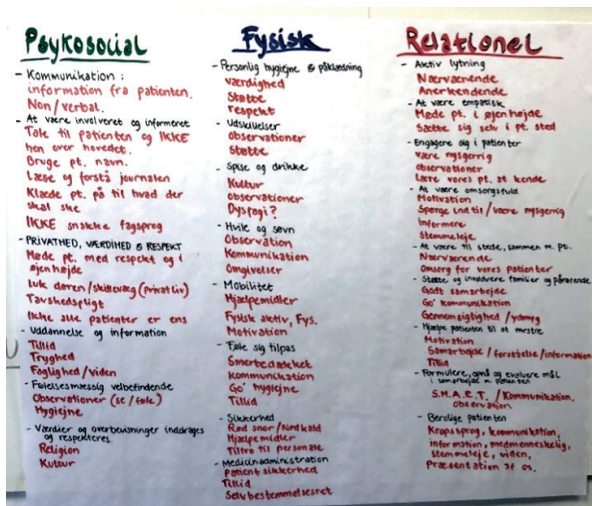 Psykosocial
- Kommunikation :
information fra patienten.
Non/verbal.
- At være involveret og informeret
Tale til patienten og IKKE
hen over hovedet.
Bruge pt. navn.
Læse og forstå journalen
Klæde pt. på til hvad der
skal ske
IKKE snakke fagsprog
- PRIVATHED, VÆRDIHED & RESPEKT
Møde pt. med respekt og i
øjenhøjde
Luk døren/skillevæg (Privat liv)
Tavshedspligt
Ikke alle patienter er ens
- Uddannelse og information
Tillid
Tryghed
Faglighed/viden
- Følelsesmæssig velbefindende
Observationer (se/føle)
Hygiejne
- Værdier og overbevisninger inddrages
og respekteres.
Religion
Kultur
Fysisk
- Personlig hygiejne & påklædning
værdighed
Støtte
respekt
- Udskillelser
observationer
Støtte
- Spise og drikke
Kultur
Observationer
Dysfagi?
- Hvile og søvn
Observation
Kommunikation
Omgivelser
- Mobilitet
Hjælpemidler
Fysisk aktiv, Fys.
Motivation
- Føle sig tilpas
Smertedækket
kommunikation
Go' hygiejne
Tillid
- Sikkerhed
Rød snor/Nødkald
Hjælpemidler
Tiltro til personale
- Medicinadministration
Patient sikkerhed
Tillid
Selvbestemmelsesret
Relationel
- Aktiv lytning
Nærværende
Anerkendende
- At være empatisk
Møde pt. i øjenhøjde
Sætte sig selv i pt. sted
- Engagere sig i patienter
være nysgerrig
observationer
Lære vores pt. at kende
- At være omsorgsfuld
Motivation
Spørge ind til/være nysgerrig
Informere
Stemmeleje
- At være til stede, sammen m. pt.
Nærværende
Omsorg for vores patienter
- Støtte og involvere familier og pårørende
Godt samarbejde
Go' kommunikation
Gennemsigtighed/ydmyg
- Hjælpe patienten til at mestre
Motivation
Samarbejde/forståelse/information
Tillid
- Formulere, opnå og evaluere mål
i samarbejde m. patienten
S.M.A.R.T. /Kommunikation.
observation
- Berolige patienten
Kropssprog, kommunikation,
information, medmenneskelig,
stemmeleje, viden,
Præsentation af os.